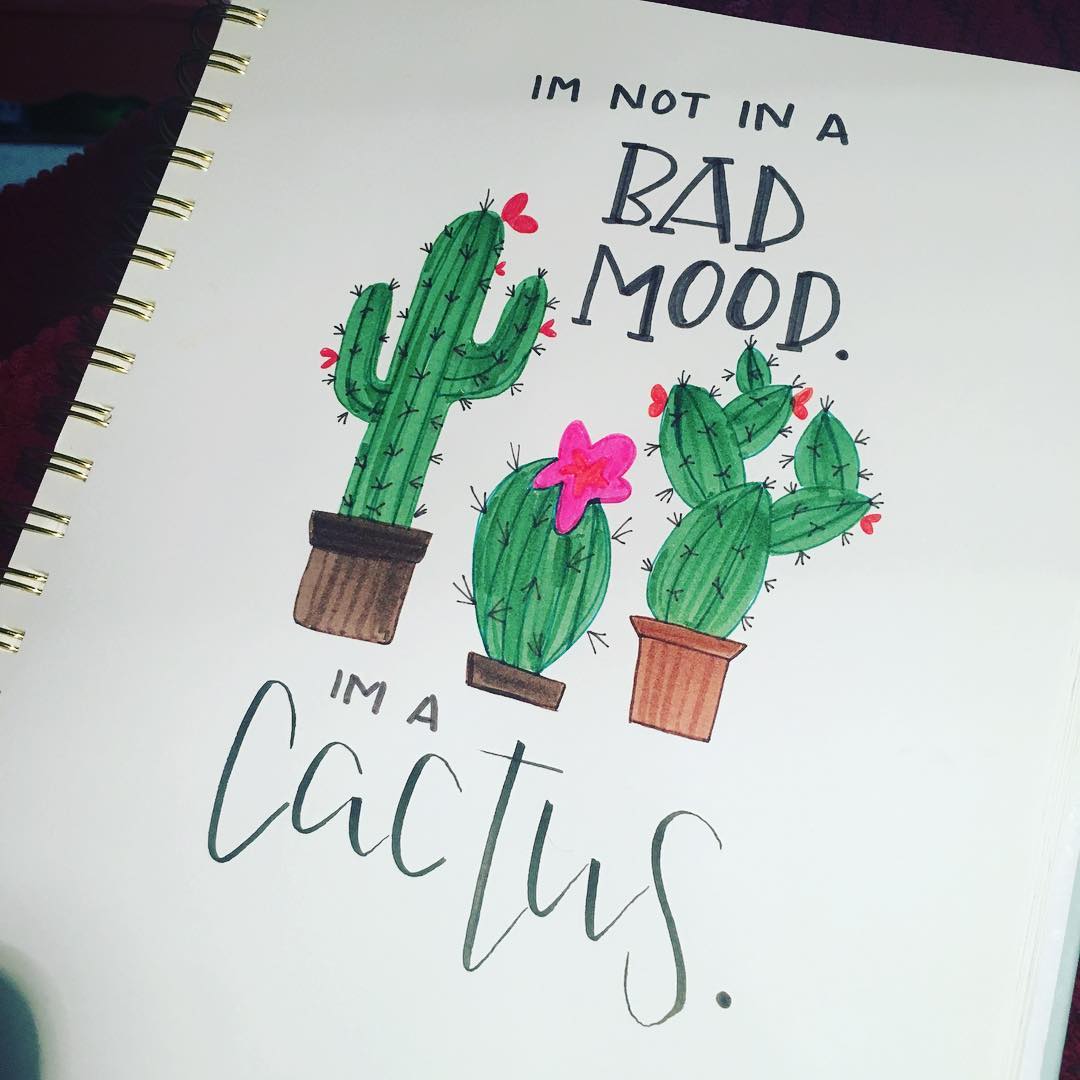 IM NOT IN A
BAD
MOOD.
IM A
cactus.